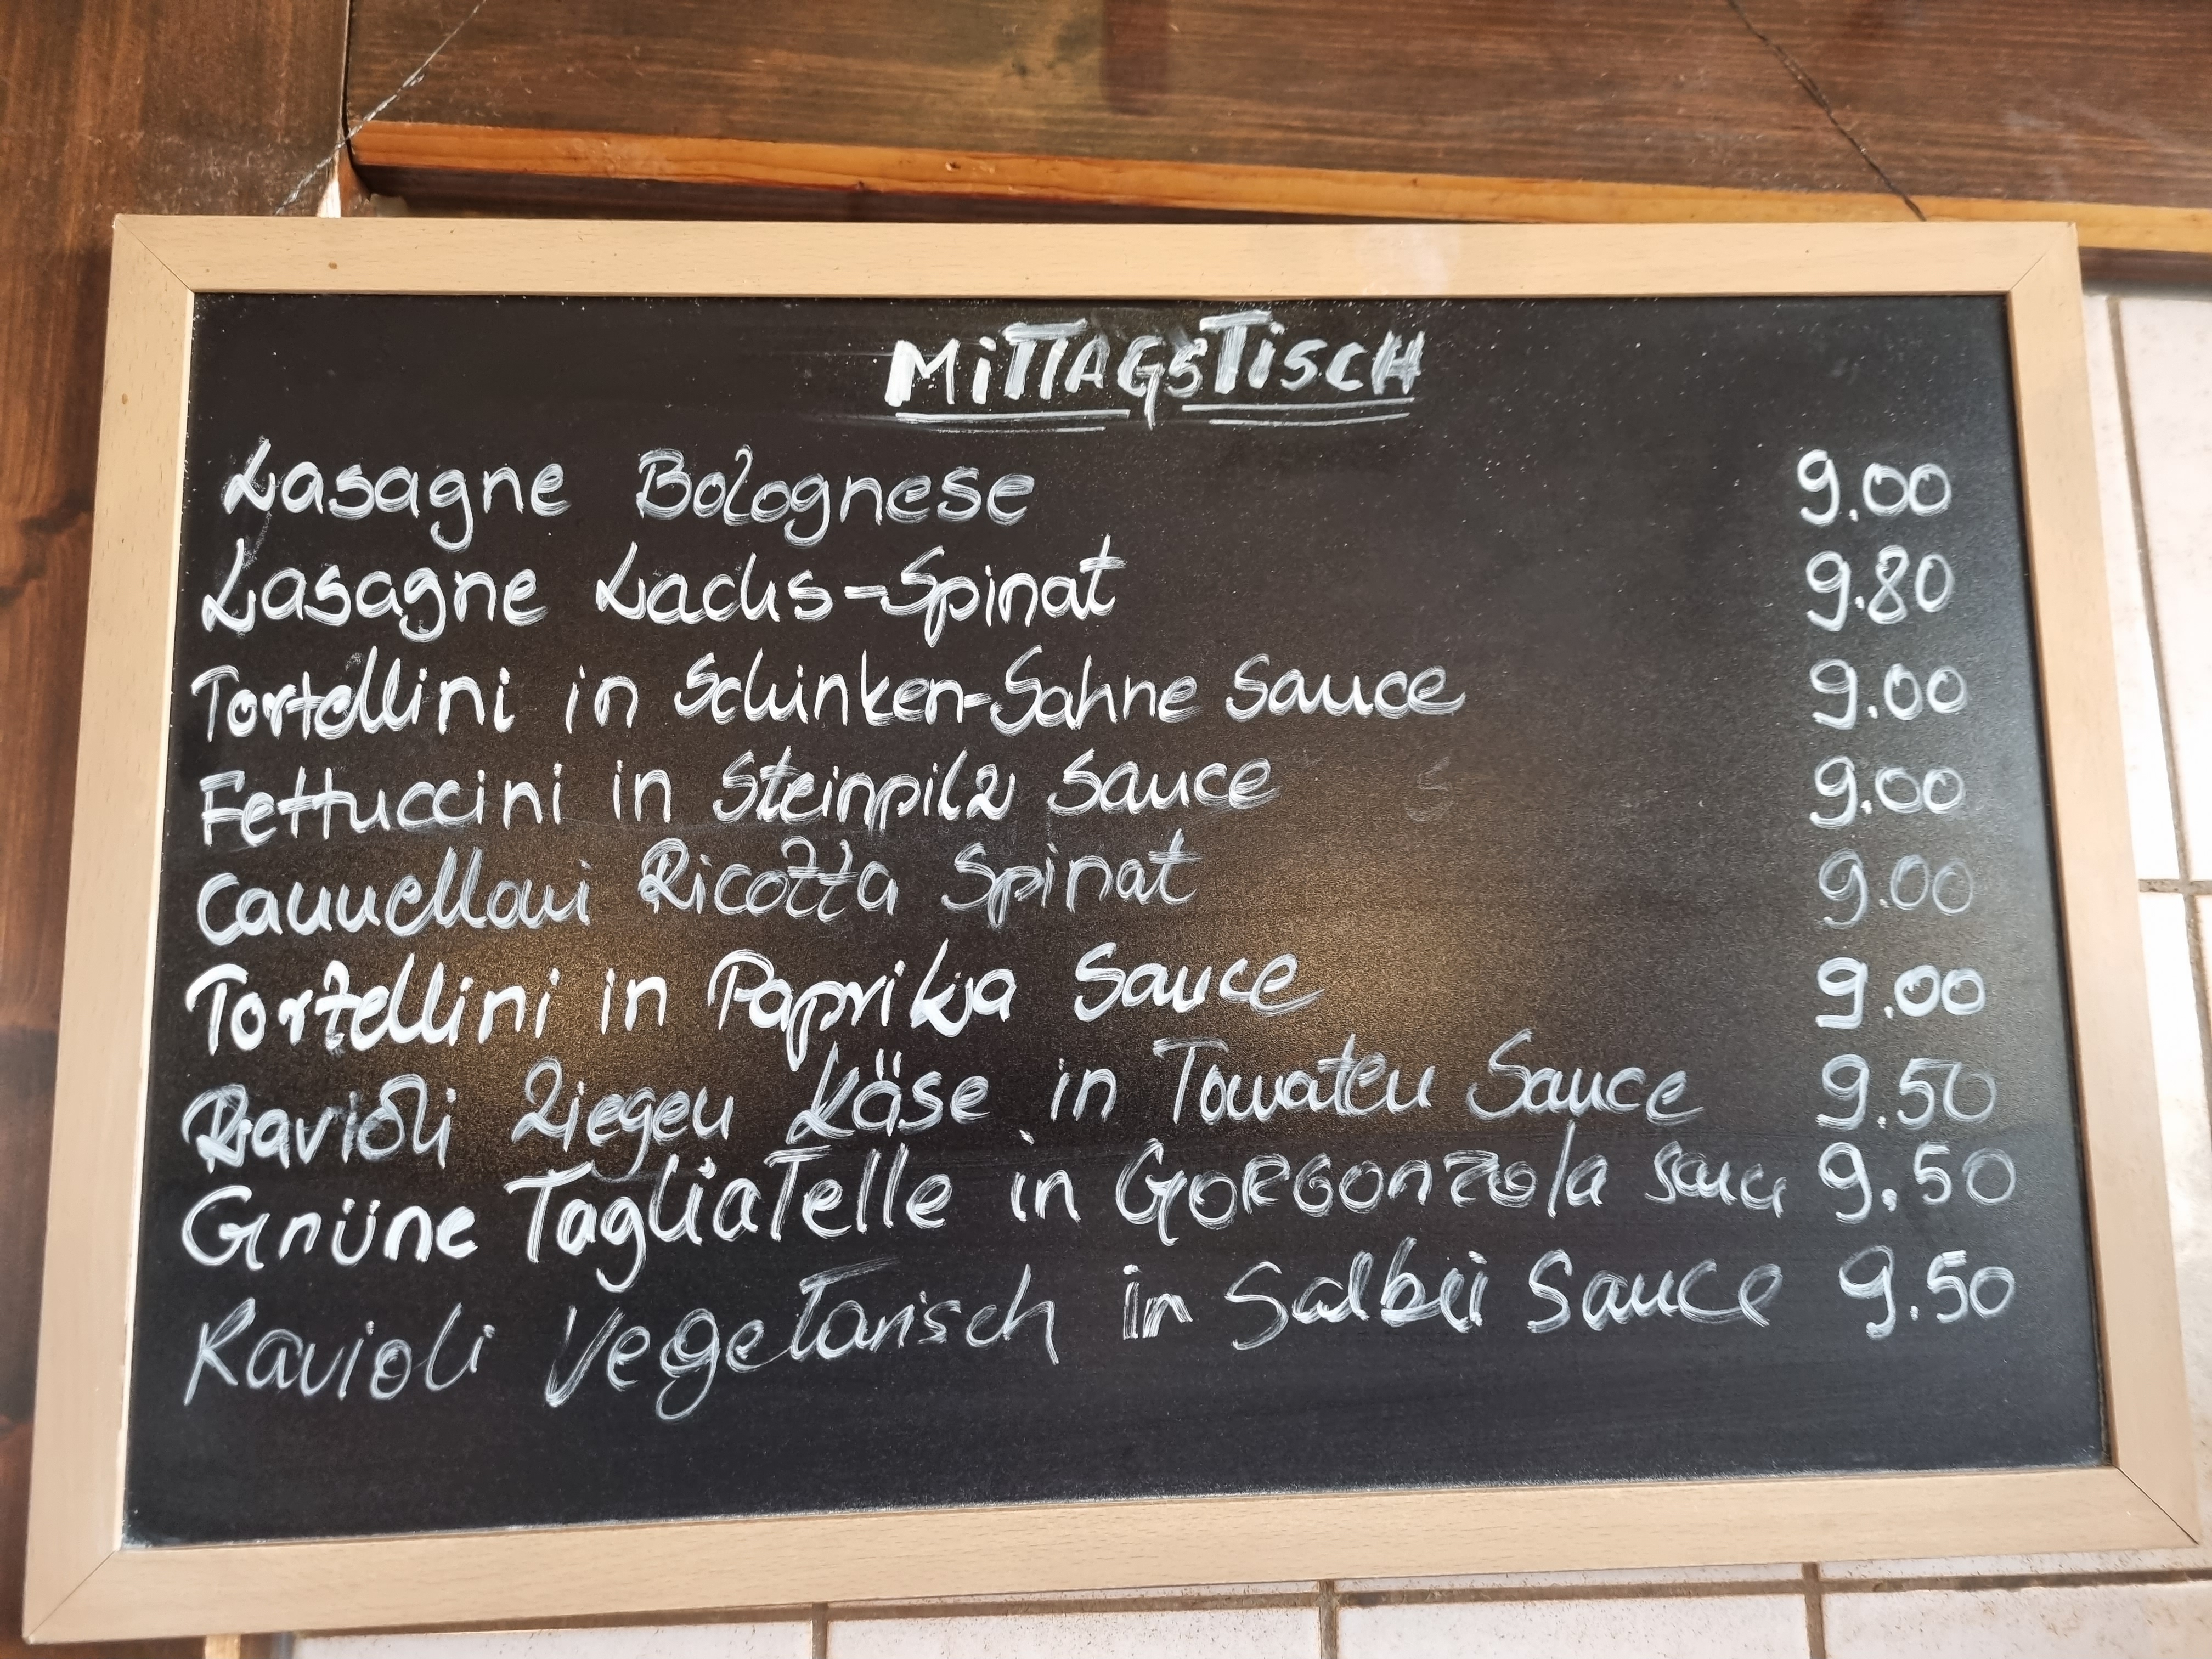 MiTTAGSTiSCH
Lasagne Bolognese 9.00
Lasagne Lachs-Spinat 9.80
Tortellini in Schinken-Sahne Sauce 9.00
Fettuccini in Steinpilz Sauce 9.00
Cannelloni Ricotta Spinat 9.00
Tortellini in Paprika Sauce 9.00
Ravioli Ziegen Käse in Tomaten Sauce 9.50
Grüne TagliaTelle in GORGOnzola Sauce 9.50
Ravioli VegeTarisch in Salbei Sauce 9.50